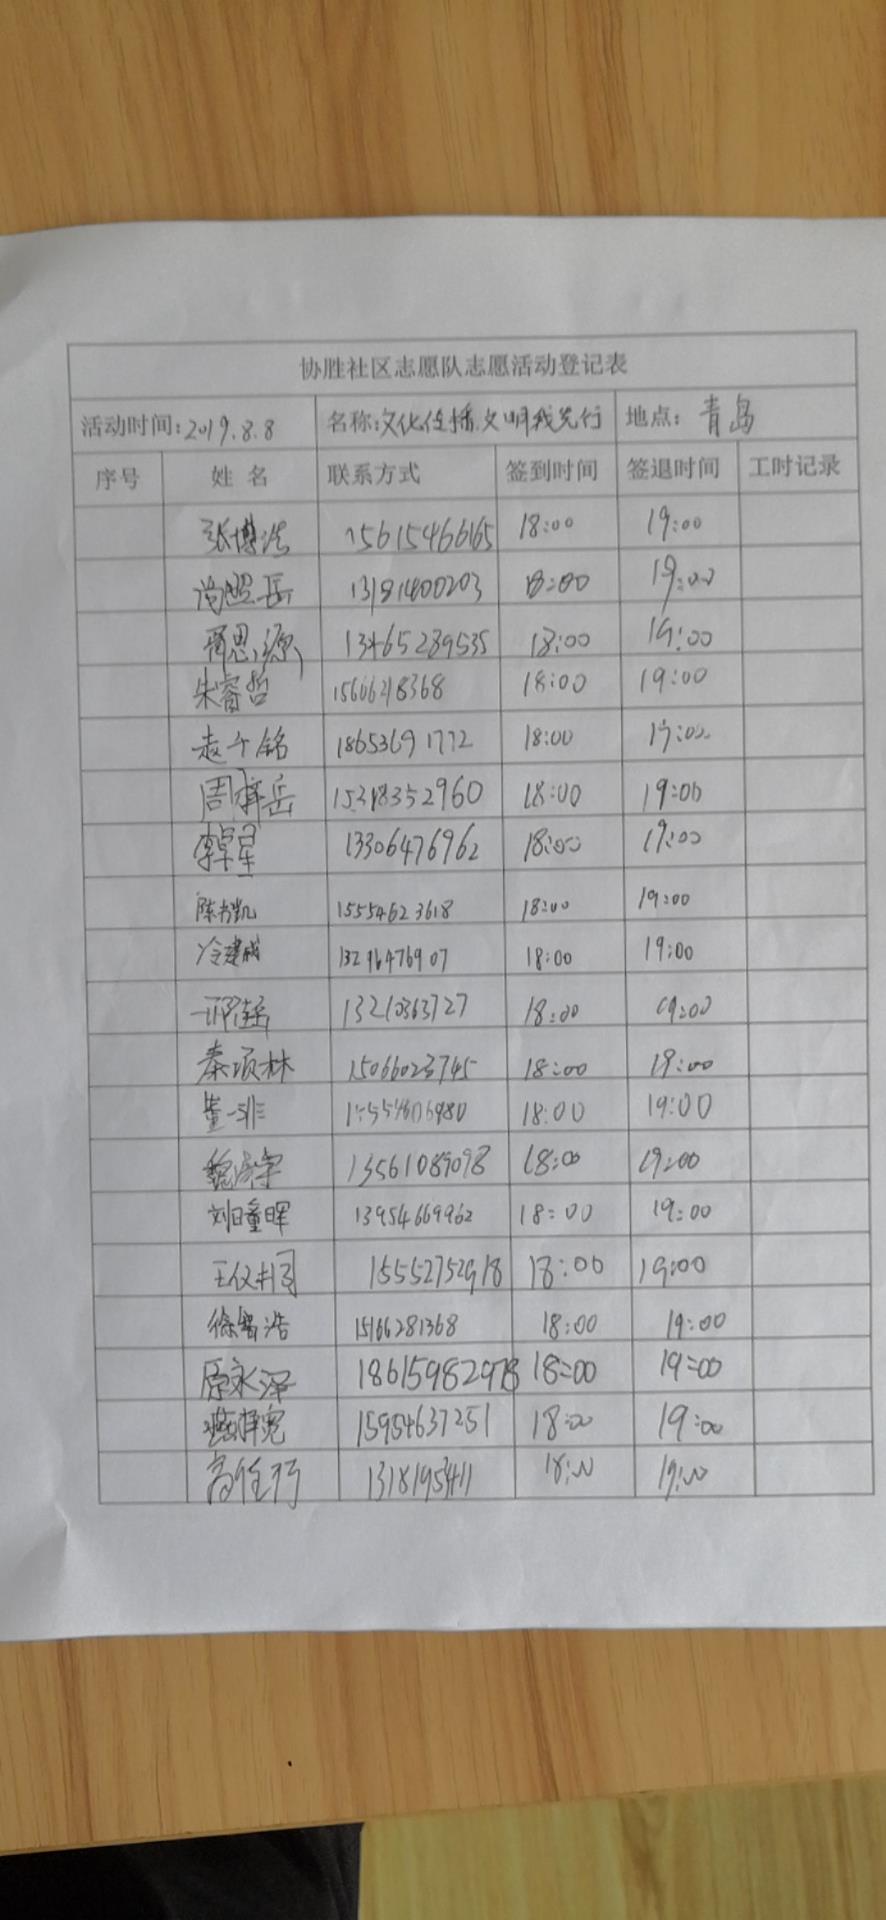 协胜社区志愿队志愿活动登记表
活动时间:2019.8.8 名称:文化传播,文明我先行 地点:青岛
序号 姓名 联系方式 签到时间 签退时间 工时记录
张博浩 15615466165 18:00 19:00
尚照岳 13181400203 18:00 19:00
胥思源 13465289535 18:00 19:00
朱睿哲 15606218368 18:00 19:00
赵千铭 18653691772 18:00 19:00
周梓岳 15318352960 18:00 19:00
13306476962 18:00 19:00
陈书凯 15554623618 18:00 19:00
冷建成 13296476907 18:00 19:00
13210363727 18:00 19:00
秦项林 15066023745 18:00 19:00
董一非 18:00 19:00
魏 宇 13561089098 18:00 19:00
刘曈晖 13954669962 18:00 19:00
15552752918 18:00 19:00
徐智浩 15166281368 18:00 19:00
原永泽 18615982978 18:00 19:00
15954637251 18:00 19:00
高任行 13181953411 18:00 19:00